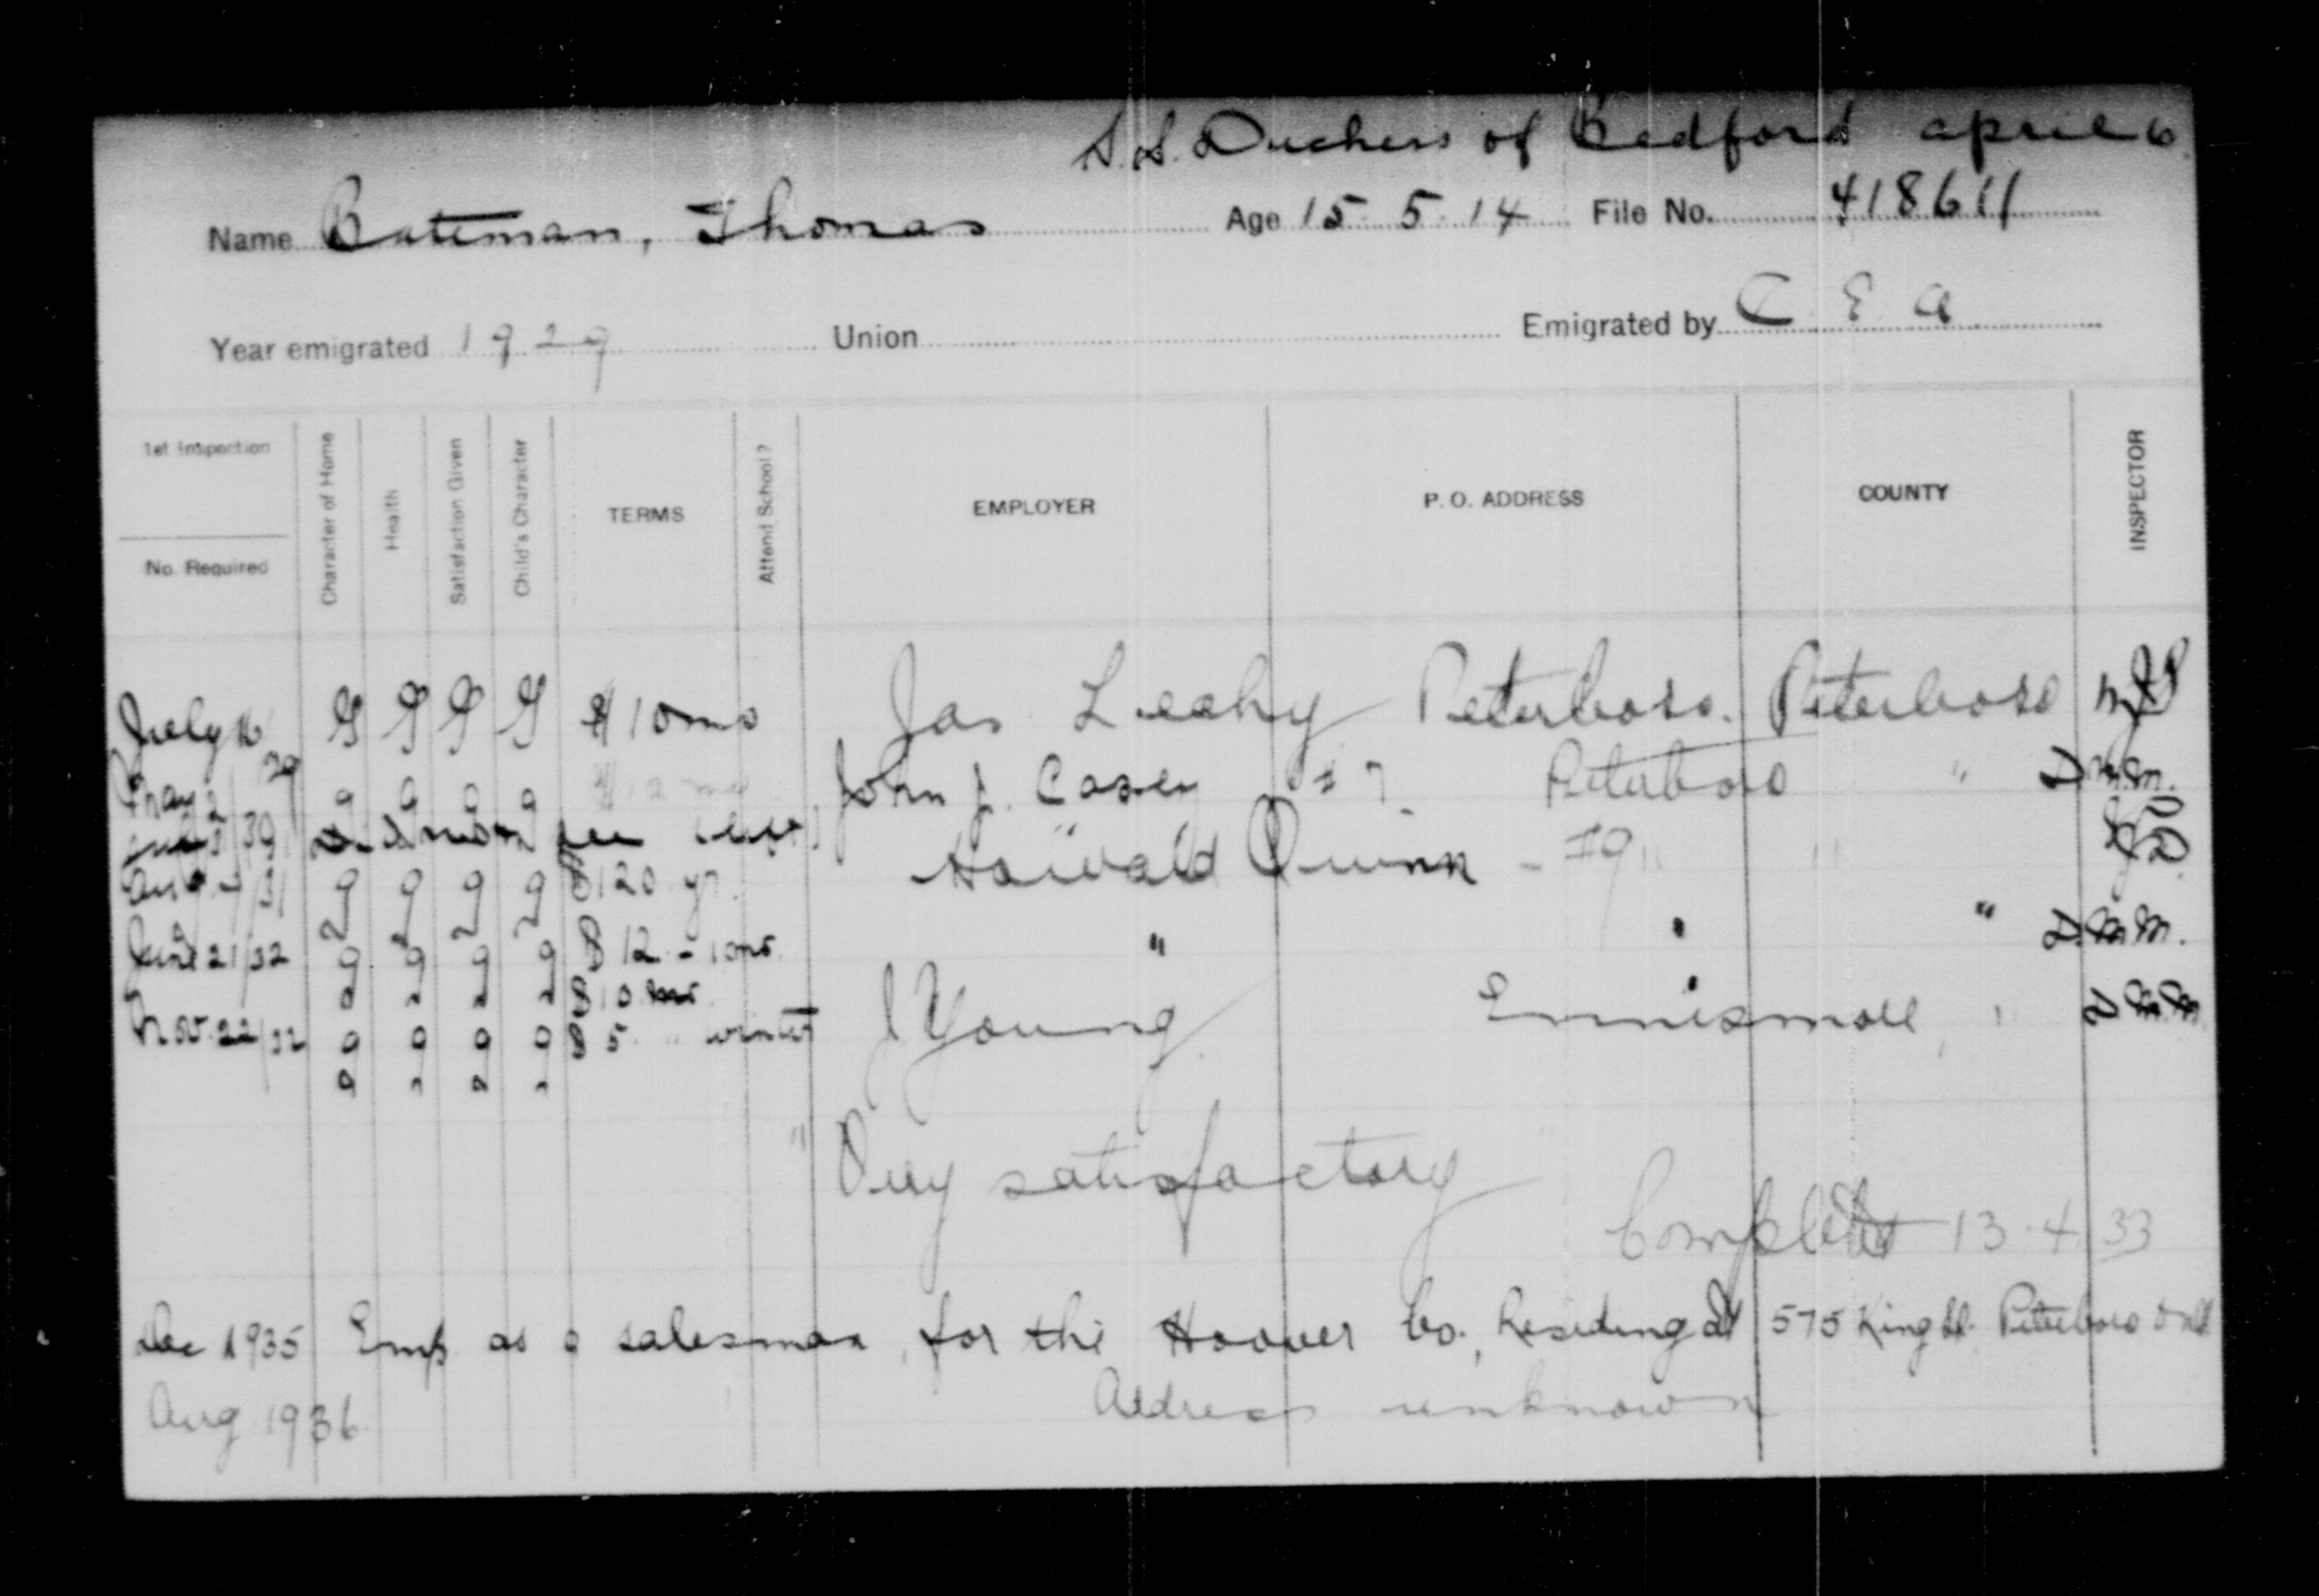 S.S. Duchess of Bedford April 6
Name Bateman, Thomas Age 15 5 14 File No. 418611
Year emigrated 1929 Union Emigrated by C E A
1st Inspection
No. Required
Character of Home
Health
Satisfaction Given
Child's Character
TERMS
Attend School?
EMPLOYER
P. O. ADDRESS
COUNTY
INSPECTOR
July 16 29 G G G G $10 mo Jas Leahy Peterboro. Peterboro
May 2 30 g g g g $12 mo John J. Casey #7 Peterboro " D.M.M.
" "
Aug. 31 g g g g $120 yr. Howald Quinn - #9 " "
June 21/32 g g g g $12 - 10 mo. " " " D.M.M.
$10 mo.
Nov. 22/32 g g g g $5 " winter J Young Ennismore " D.M.M.
" Very satisfactory "
Completed 13.4.33
Dec 1935 Emp as a salesman, for the Hoover Co., Residing at 575 King St. Peterboro Ont
Aug 1936 Address unknown